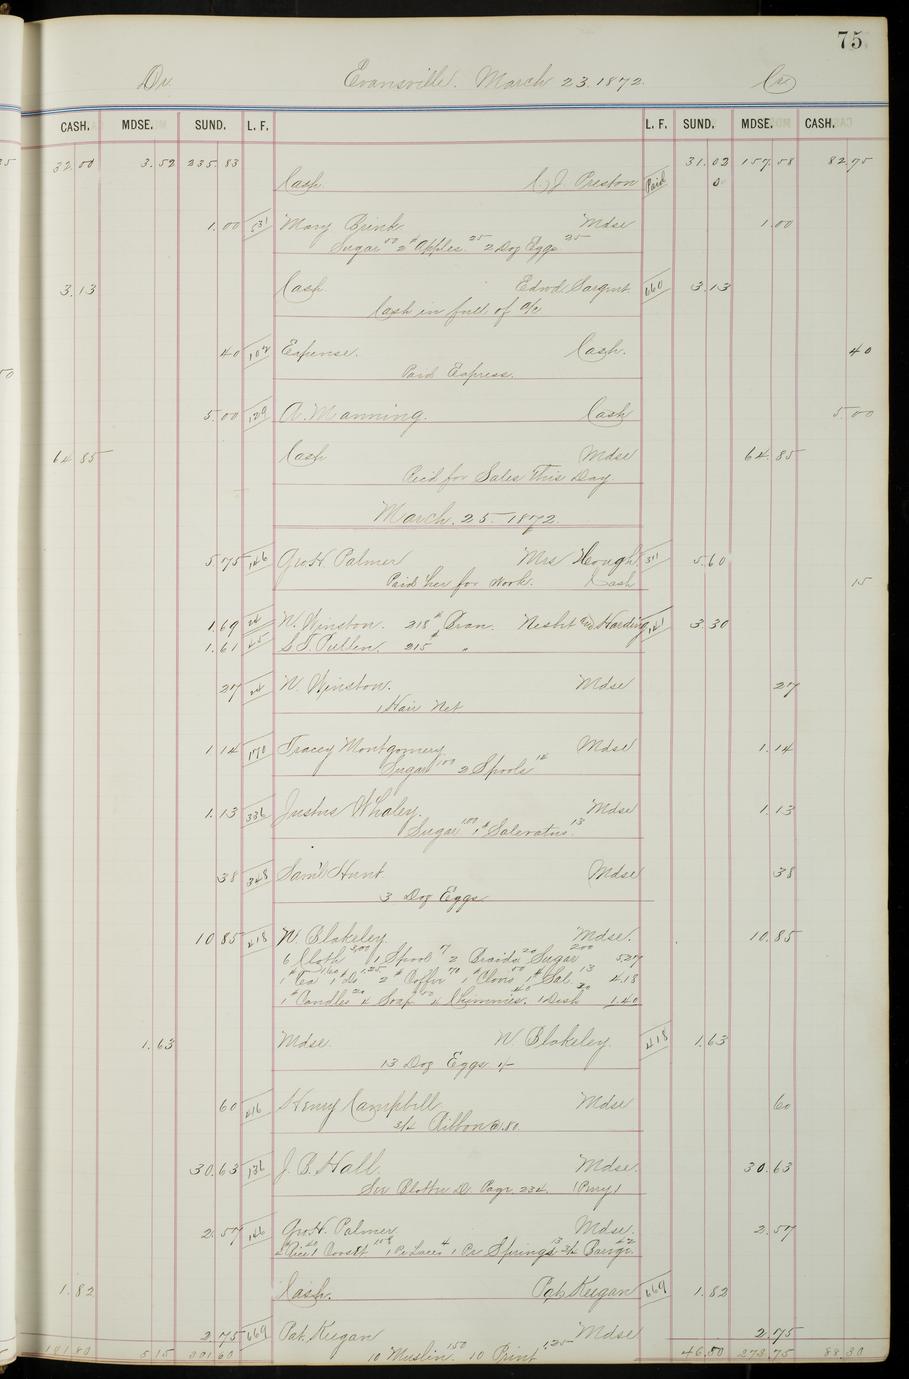 75
Dr. Evansville. March 23. 1872. Cr
CASH. MDSE. SUND. L. F. L. F. SUND. MDSE. CASH.
32.50 3.52 235.83 31.02 157.58 82.75
Cash C. J. Preston Paid 0
1.00 Mary Brink Mdse 1.00
Sugar 50 2# Apples 25 2 Doz Eggs 25
3.13 Cash Edwd Sargent 660 3.13
Cash in full of a/c
40 102 Expense. Cash. 40
Paid Express.
5.00 129 A. Manning. Cash 5.00
64.85 Cash Mdse 64.85
Rec'd for Sales This Day
March. 25. 1872.
5.75 146 Geo H. Palmer Mrs Hough 311 5.60
Paid her for Work. Cash 15
1.69 24 N. Winston. 218# Bran. Nesbit and Harding 141 3.30
1.61 45 S. T. Pullen. 215# "
27 24 N. Winston. Mdse 27
1 Hair Net
1.14 170 Tracey Montgomery Mdse 1.14
Sugar 1.00 2 Spools 14
1.13 336 Justus Whaley. Mdse 1.13
Sugar 1.00 1# Saleratus 13
38 348 Sam'l Hunt Mdse 38
3 Doz Eggs
10.85 418 N. Blakeley. Mdse. 10.85
6 Cloth 3.00 1 Spool 7 2 Braids 20 Sugar 2.00 5.27
1# Tea 1.60 1# Do 1.25 2# Coffee 70 # Cloves 50 1# Sal. 13 4.18
1# Candles 20 4 Soap 50 4 Chimnies. 40 1 Dish 30 1.40
1.63 Mdse. N Blakeley. 418 1.63
13 Doz Eggs 1/
60 416 Henry Campbell Mdse 60
3/4 Ribbon @ .80
30.63 136 J. B. Hall. Mdse. 30.63
See Blotter D. Page. 234. (Perry)
2.57 146 Geo H. Palmer Mdse. 2.57
1 Pr Laces 4 1 Pr Springs 13
1.82 Cash. Pat. Keegan 669 1.82
2.75 669 Pat. Keegan Mdse 2.75
10 Muslin 1.50 10 Print 1.25
101.80 5.15 301.60 46.50 273.75 88.30